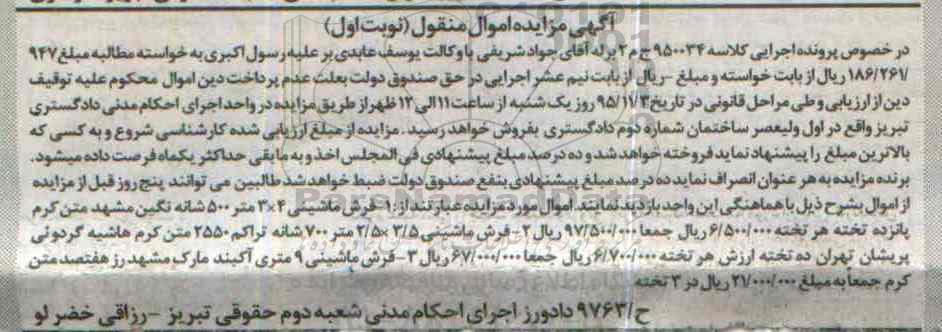 آگهی مزایده اموال منقول (نوبت اول)
در خصوص پرونده اجرایی کلاسه ۹۵۰۰۳۴ ج م ۲ برله آقای جواد شریفی با وکالت یوسف عابدی بر علیه رسول اکبری به خواسته مطالبه مبلغ ۹۴۷
/۱۸۶/۲۶۱ ریال از بابت خواسته و مبلغ -ریال از بابت نیم عشر اجرایی در حق صندوق دولت بعلت عدم پرداخت دین اموال محکوم علیه توقیف
دین از ارزیابی وطی مراحل قانونی در تاریخ ۹۵/۱۱/۳ روز یک شنبه از ساعت ۱۱ الی ۱۲ ظهر از طریق مزایده در واحد اجرای احکام مدنی دادگستری
تبریز واقع در اول ولیعصر ساختمان شماره دوم دادگستری بفروش خواهد رسید. مزایده از مبلغ ارزیابی شده کارشناسی شروع و به کسی که
بالاترین مبلغ را پیشنهاد نماید فروخته خواهد شد و ده درصد مبلغ پیشنهادی فی المجلس اخذ و به مابقی حداکثر یکماه فرصت داده میشود.
برنده مزایده به هر عنوان انصراف نماید ده درصد مبلغ پیشنهادی بنفع صندوق دولت ضبط خواهد شد طالبین می توانند پنج روز قبل از مزایده
از اموال بشرح ذیل با هماهنگی این واحد بازدید نمایند اموال مورد مزایده عبارتند از: ۱- فرش ماشینی ۴×۳ متر ۵۰۰ شانه نگین مشهد متن کرم
پانزده تخته هر تخته ۶/۵۰۰/۰۰۰ ریال جمعا ۹۷/۵۰۰/۰۰۰ ریال ۲- فرش ماشینی ۳/۵×۲/۵ متر ۷۰۰ شانه تراکم ۲۵۵۰ متن کرم هاشیه گردونی
پریشان تهران ده تخته ارزش هر تخته ۶/۷۰۰/۰۰۰ ریال جمعا ۶۷/۰۰۰/۰۰۰ ریال ۳- فرش ماشینی ۹ متری آکبند مارک مشهد رز هفتصد متن
کرم جمعاً به مبلغ ۲۷/۰۰۰/۰۰۰ ریال در ۳ تخته
ح/۹۷۶۳ دادورز اجرای احکام مدنی شعبه دوم حقوقی تبریز - رزاقی خضر لو